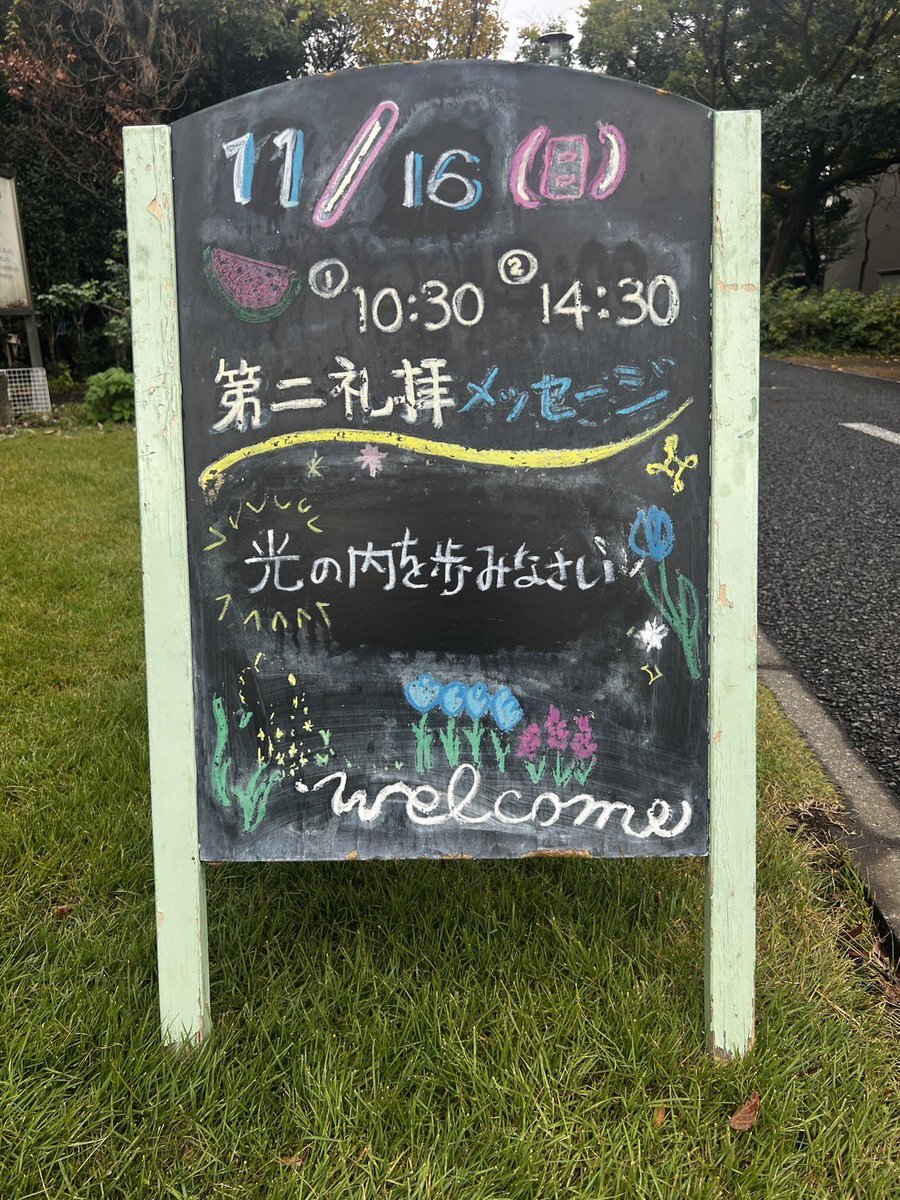 11/16(日)
① 10:30 ② 14:30
第二礼拝メッセージ
光の内を歩みなさい
welcome